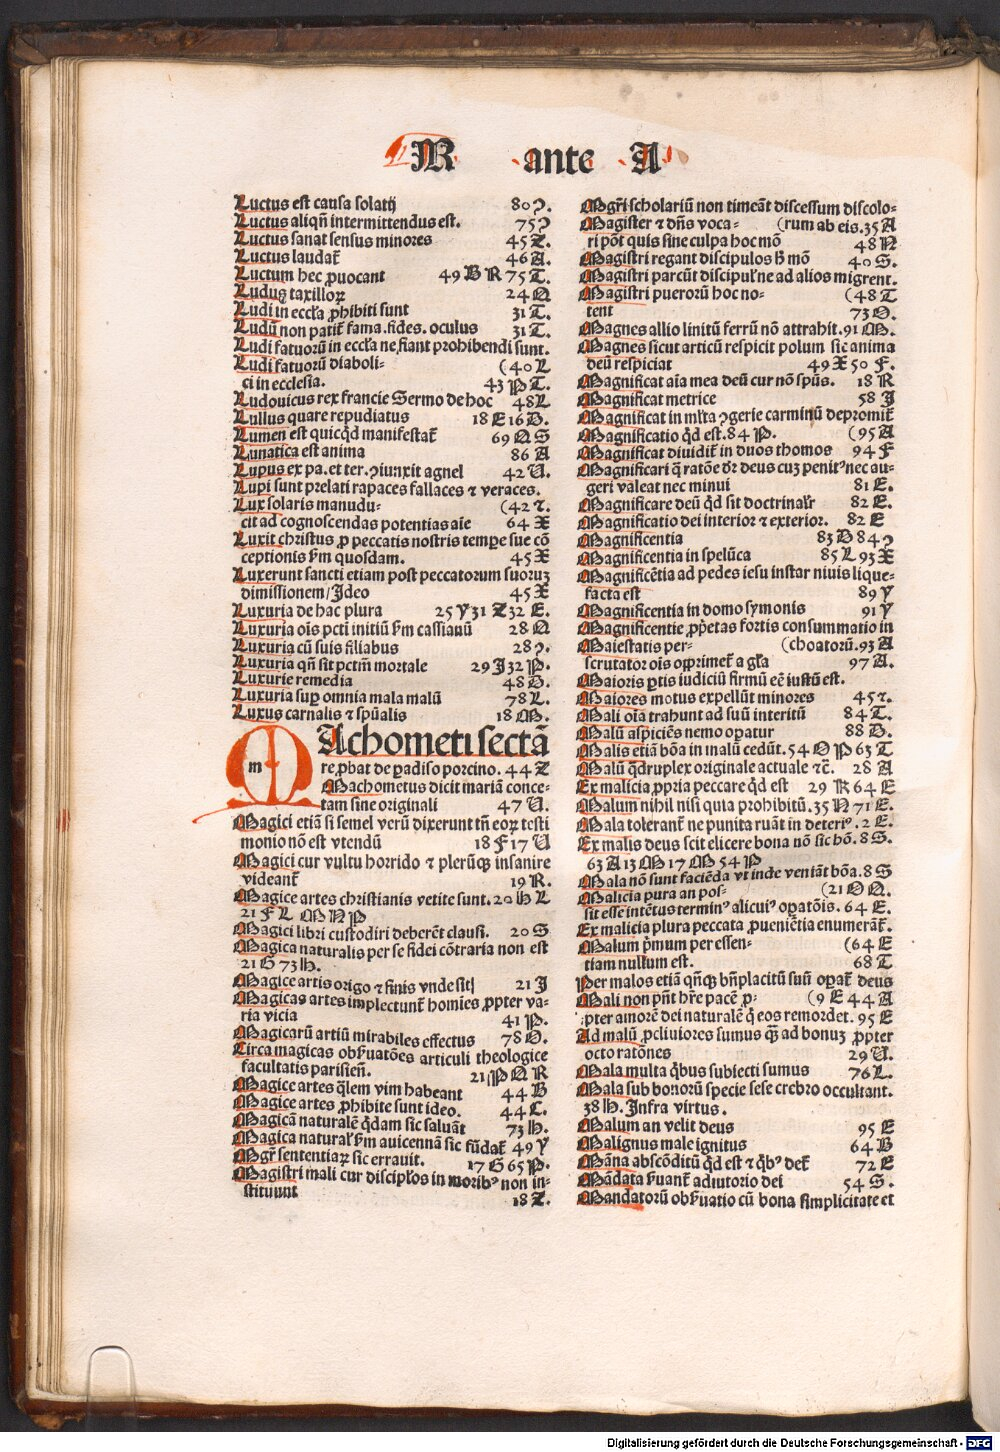 M ante A
Luctus est causa solatij 80 ?.
Luctus aliqñ intermittendus est. 75 ?
Luctus sanat sensus minores 45 Z.
Luctus laudat̃ 46 A.
Luctum hec ꝓuocant 49 B R 75 T.
Ludus taxilloꝝ 24 Q
Ludi in eccl̃a ꝓhibiti sunt 31 T.
Ludũ non patit̃ fama. fides. oculus 31 T.
Ludi fatuorũ in eccl̃a ne fiant prohibendi sunt.
Ludi fatuorũ diaboli- (40 L
ci in ecclesia. 43 P T.
Ludouicus rex francie Sermo de hoc 48 L
Lullus quare repudiatus 18 E 16 D.
Lumen est quicq̃d manifestat̃ 69 Q S
Lunatica est anima 86 A
Lupus ex pa. et ter. ꝯiunxit agnel 42 U.
Lupi sunt prelati rapaces fallaces ⁊ veraces.
Lux solaris manudu- (42 ⁊.
cit ad cognoscendas potentias aĩe 64 X
Luxit christus ꝓ peccatis nostris tempe sue cõ
ceptionis ẜm quosdam. 45 X
Luxerunt sancti etiam post peccatorum suoruꝫ
dimissionem/Ideo 45 X
Luxuria de hac plura 25 Y 31 Z 32 E.
Luxuria oĩs pctĩ initiũ ẜm cassianũ 28 Q
Luxuria cũ suis filiabus 28 ?.
Luxuria qñ sit pctm̃ mortale 29 I 32 P.
Luxurie remedia 48 D.
Luxuria suꝑ omnia mala malũ 78 L.
Luxus carnalis ⁊ sp̃ualis 18 M.
m
MAchometi sectã
reꝓbat de ꝑadiso porcino. 44 Z
Machometus dicit mariã conce-
tam sine originali 47 U.
Magici etiã si semel verũ dixerunt tñ eoꝝ testi
monio nõ est vtendũ 18 F 17 U
Magici cur vultu horrido ⁊ plerũqꝫ insanire
videant̃ 19 R.
Magice artes christianis vetite sunt. 20 H L
21 F L M N P
Magici libri custodiri deberẽt clausi. 20 S
Magica naturalis per se fidei cõtraria non est
21 G 73 H.
Magice artis origo ⁊ finis vnde sit 21 I
Magicas artes implectunt̃ homĩes ꝓpter va-
ria vicia 41 P.
Magicarũ artiũ mirabiles effectus 78 O.
Circa magicas obẜuatões articuli theologice
facultatis parisieñ. 21 P Q R
Magice artes q̃lem vim habeant 44 B
Magice artes ꝓhibite sunt ideo. 44 C.
Magicã naturalẽ q̃dam sic saluãt 73 H.
Magica natural' ẜm auicennã sic fũdat̃ 49 Y
Mgr̃ sententiaꝝ sic errauit. 17 G 65 P.
Magistri mali cur discipl̃os in moribꝰ non in-
stituunt 18 Z.
Mgr̃i scholariũ non timeãt discessum discolo-
Magister ⁊ dñs voca- (rum ab eis. 35 A
ri põt quis sine culpa hoc mõ 48 N
Magistri regant discipulos h̃ mõ 40 S.
Magistri parcũt discipul' ne ad alios migrent.
Magistri puerorũ hoc no- (48 T
tent 73 O.
Magnes allio linitũ ferrũ nõ attrahit. 91 M.
Magnes sicut articũ respicit polum sic anima
deũ respiciat 49 X 50 F.
Magnificat aĩa mea deũ cur nõ sp̃us. 18 R
Magnificat metrice 58 I
Magnificat in ml̃ta ꝯgerie carminũ depromit̃
Magnificatio q̃d est. 84 P. (95 A
Magnificat diuidit̃ in duos thomos 94 F
Magnificari q̃ ratõe dr̃ deus cuꝫ penitꝰ nec au-
geri valeat nec minui 81 E.
Magnificare deũ q̃d sit doctrinalr̃ 82 E.
Magnificatio dei interior ⁊ exterior. 82 E
Magnificentia 83 D 84 ?
Magnificentia in spelũca 85 L 93 X
Magnificẽtia ad pedes iesu instar niuis lique-
facta est 89 Y
Magnificentia in domo symonis 91 Y
Magnificentie ꝓp̃etas fortis consummatio in
Maiestatis per- (choatorũ. 93 A
scrutator oĩs opprimet̃ a gl̃a 97 A.
Maioris ꝑtis iudiciũ firmũ eẽ iustũ est.
Maiores motus expellũt minores 45 ⁊.
Mali oĩa trahunt ad suũ interitũ 84 T.
Malũ aspiciẽs nemo oꝑatur 88 D.
Malis etiã bõa in malũ cedũt. 54 O P 63 T
Malũ q̃druplex originale actuale ⁊c̃. 28 A
Ex malicia ꝓpria peccare q̃d est 29 R 64 E
Malum nihil nisi quia prohibitũ. 35 N 71 E.
Mala tolerant̃ ne punita ruãt in deteriꝰ. 2 E.
Ex malis deus scit elicere bona nõ sic hõ. 8 S.
63 A 13 M 17 M 54 P
Mala nõ sunt faciẽda vt inde veniãt bõa. 8 S
Malicia pura an pos- (21 O Q.
sit esse intẽtus terminꝰ alicuiꝰ oꝑatõis. 64 E.
Ex malicia plura peccata ꝓueniẽtia enumerãt̃.
Malum p̃mum per essen- (64 E
tiam nullum est. 68 T
Per malos etiã qñqꝫ bñplacitũ suũ oꝑat̃ deus
Mali non pñt hr̃e pacẽ ꝓ- (9 E 44 A
pter amorẽ dei naturalẽ q̃ eos remordet. 95 E
Ad malũ ꝓcliuiores sumus q̃ꝫ ad bonuꝫ ꝓpter
octo ratões 29 U.
Mala multa q̃bus subiecti sumus 76 L.
Mala sub bonorũ specie sese crebro occultant.
38 H. Infra virtus.
Malum an velit deus 95 E
Malignus male ignitus 64 B
Mãna abscõditũ q̃d est ⁊ q̃bꝰ det̃ 72 E
Mãdata ẜuant̃ adiutorio dei 54 S.
Mandatorũ obẜuatio cũ bona simplicitate et
Digitalisierung gefördert durch die Deutsche Forschungsgemeinschaft - DFG